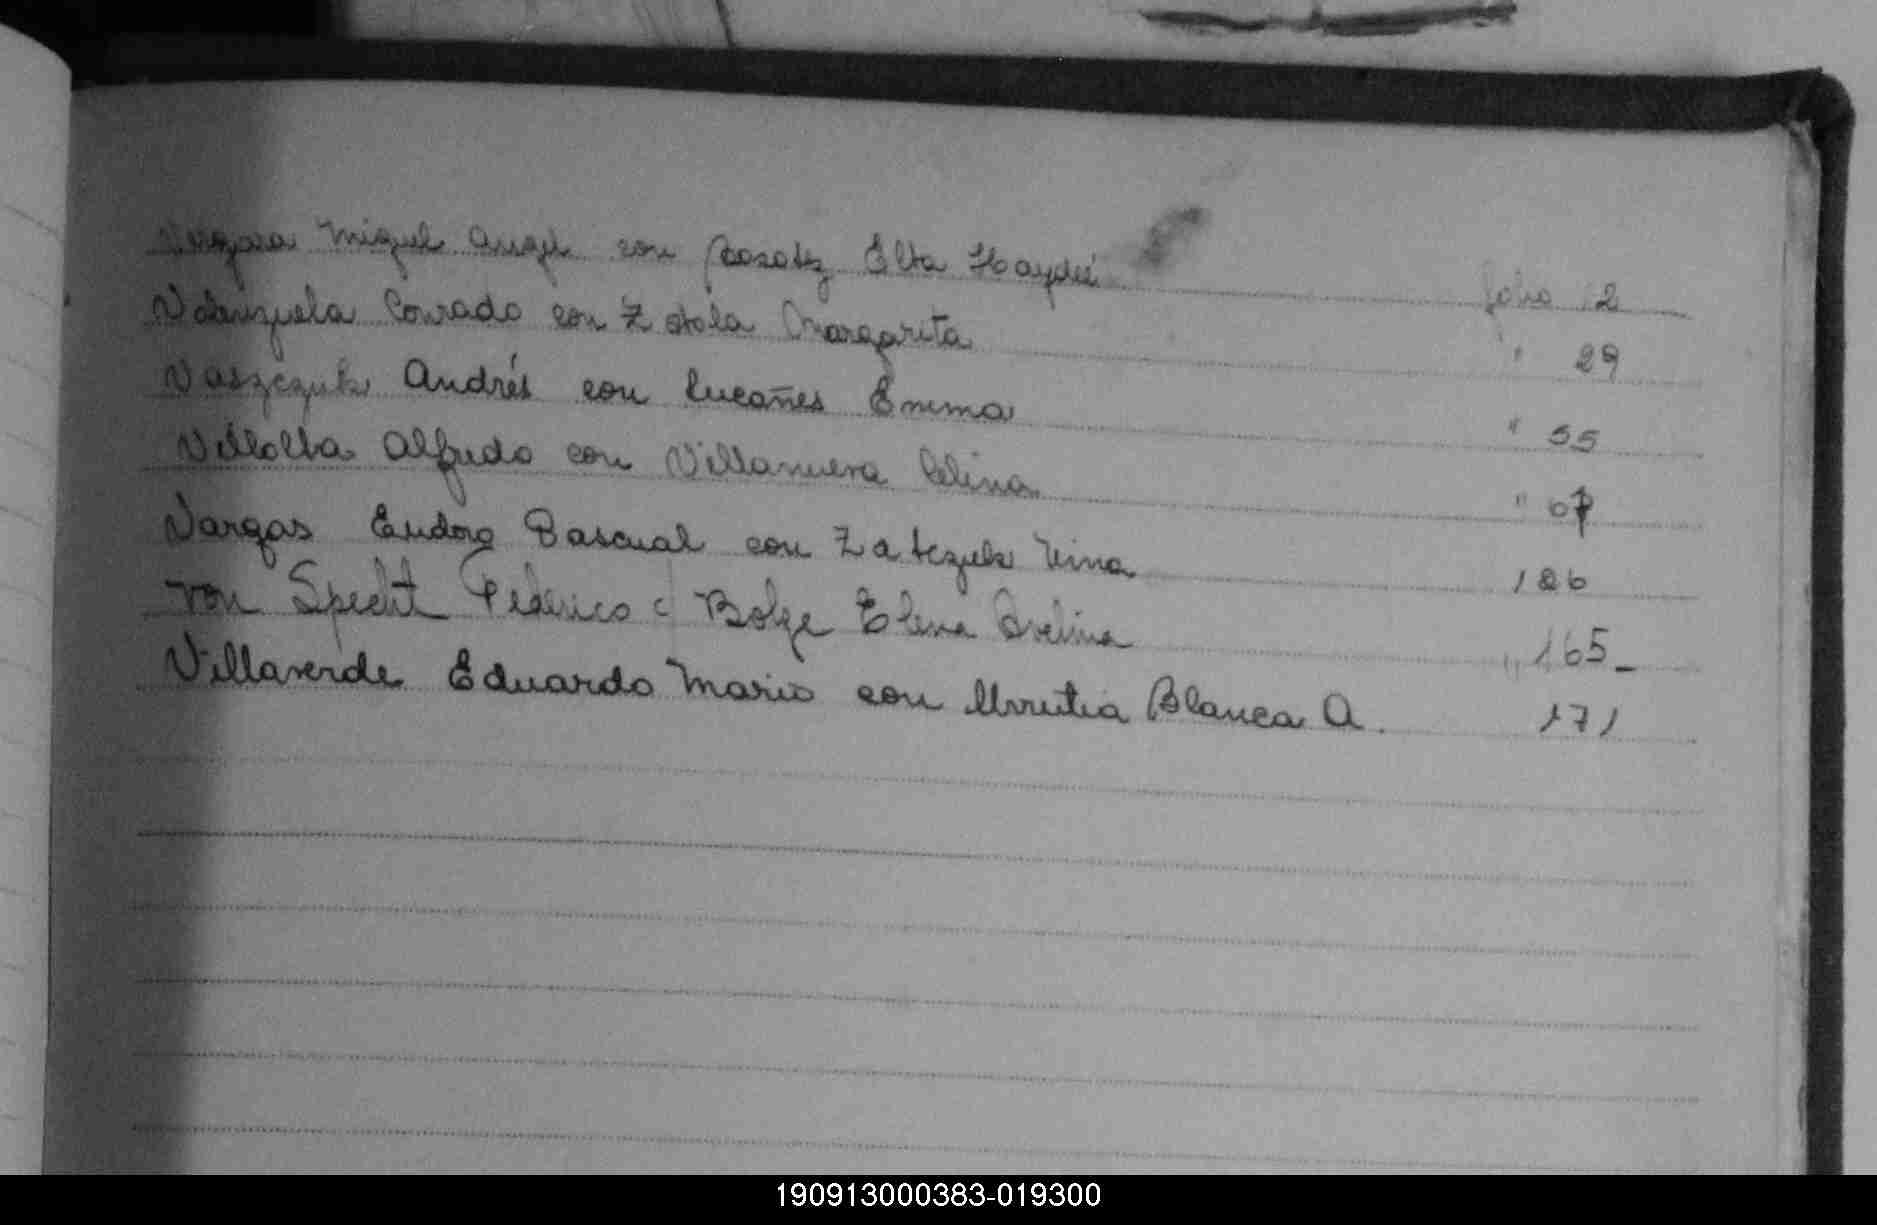 Vergara Miguel Angel con Elba Haydée folio 12
Valenzuela Conrado con Margarita " 29
Waszczuk Andrés con Lucañes Emma " 55
Villalba Alfredo con Villanueva Celina " 67
Vargas Eudoro Pascual con Zatezuk Nina 126
von Specht Federico c Bolze Elena Avelina " 165_
Villaverde Eduardo Mario con Urrutia Blanca A. 171
190913000383-019300